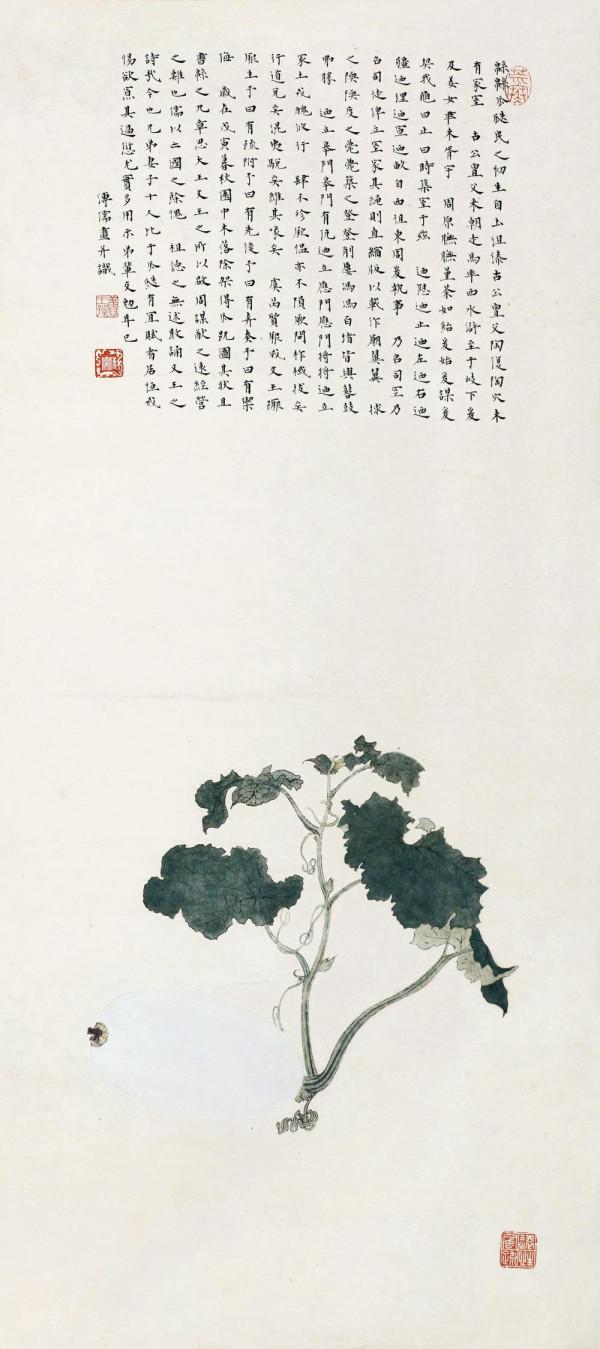 緜緜瓜瓞民之初生自土沮漆古公亶父陶復陶穴未
有家室 古公亶父來朝走馬率西水滸至于岐下爰
及姜女聿來胥宇 周原膴膴堇荼如飴爰始爰謀爰
契我龜曰止曰時築室于茲 迺慰迺止迺左迺右迺
疆迺理迺宣迺畝自西徂東周爰執事 乃召司空乃
召司徒俾立室家其繩則直縮版以載作廟翼翼 捄
之陾陾度之薨薨築之登登削屢馮馮百堵皆興鼛鼓
弗勝 迺立皋門皋門有伉迺立應門應門將將迺立
冢土戎醜攸行 肆不殄厥慍亦不隕厥問柞棫拔矣
行道兌矣混夷駾矣維其喙矣 虞芮質厥成文王蹶
厥生予曰有疏附予曰有先後予曰有奔奏予曰有禦
侮 歲在戊寅暮秋園中木落除架得瓜瓞圖其狀且
書緜之九章思大王文王之所以啟周謀猷之遠經營
之難也儒以亡國之餘愧 祖德之無述敢誦文王之
詩哉今也兄弟妻子十人比于瓜瓞有宜賦者居恆戒
惕欲寡其過愆尤實多用示弟輩交勉耳已
溥儒畫并識